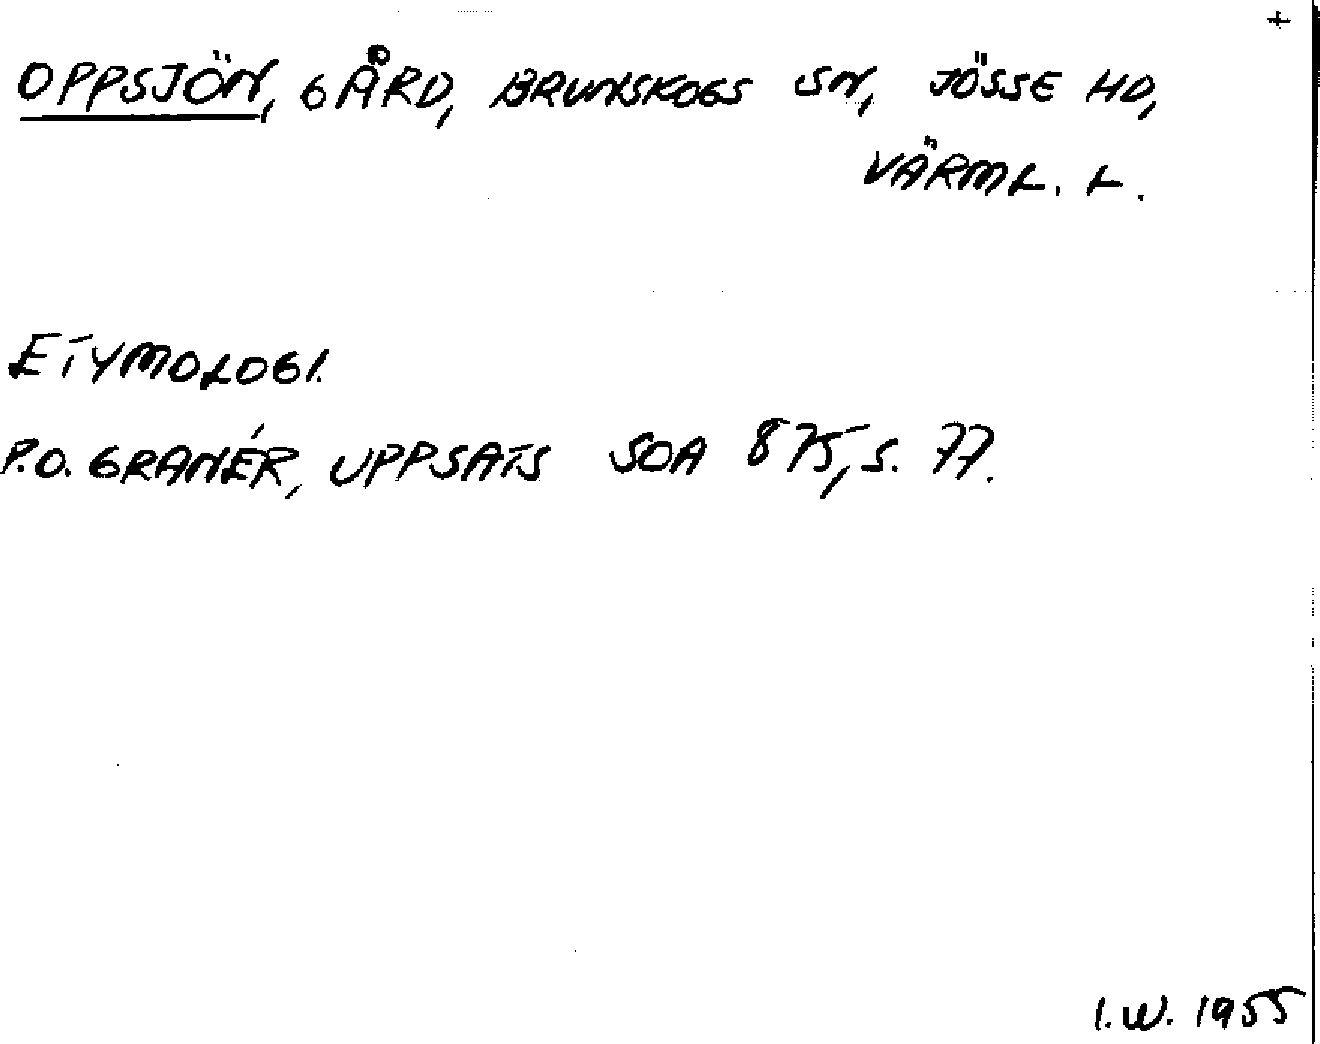 +
OPPSJÖN, GÅRD, BRUNSKOGS SN, JÖSSE HD,
VÄRML. L.
ETYMOLOGI.
P.O. GRANÉR, UPPSATS SOA 875, S. 77.
I.W. 1955